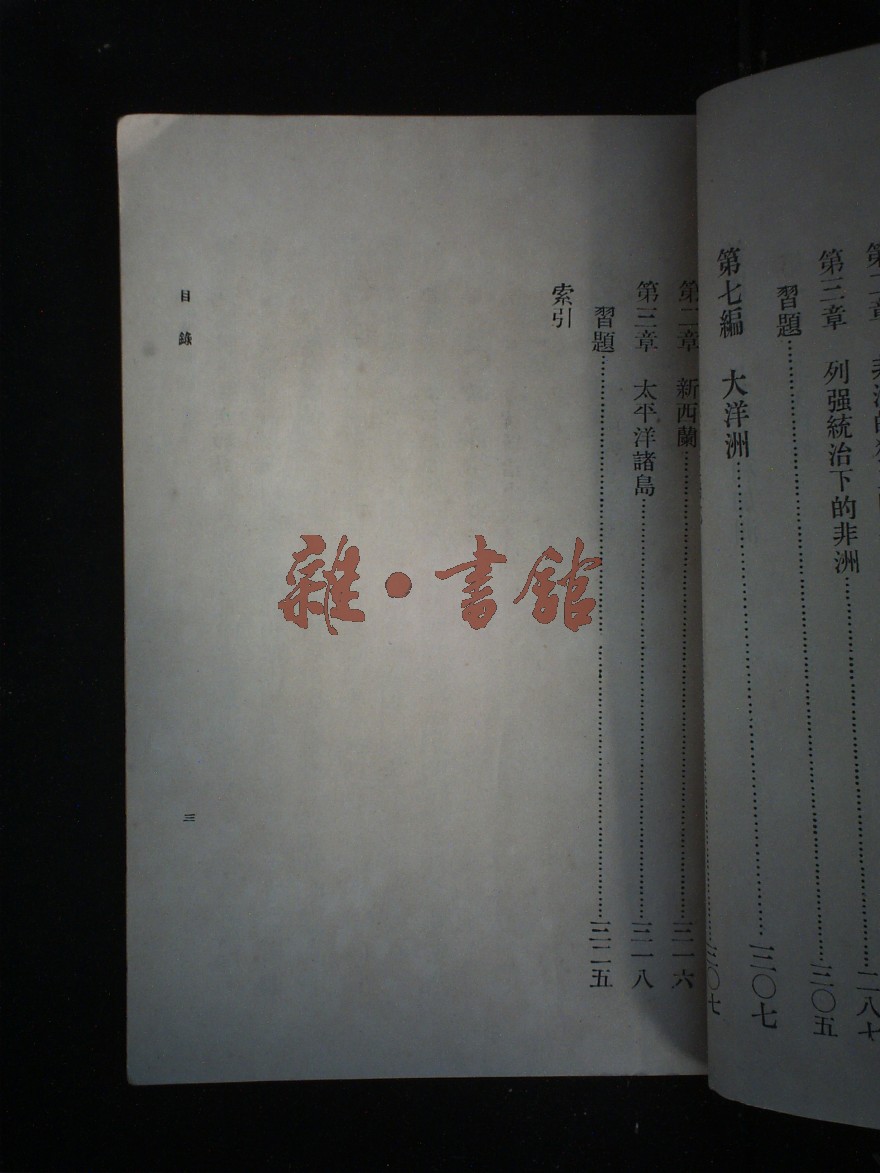 第三章　列强統治下的非洲……二八七
習題……三〇五
第七編　大洋洲……三〇七
……三〇七
第二章　新西蘭……三一六
第三章　太平洋諸島……三一八
習題……三二五
索引
目錄
三
雜·書館